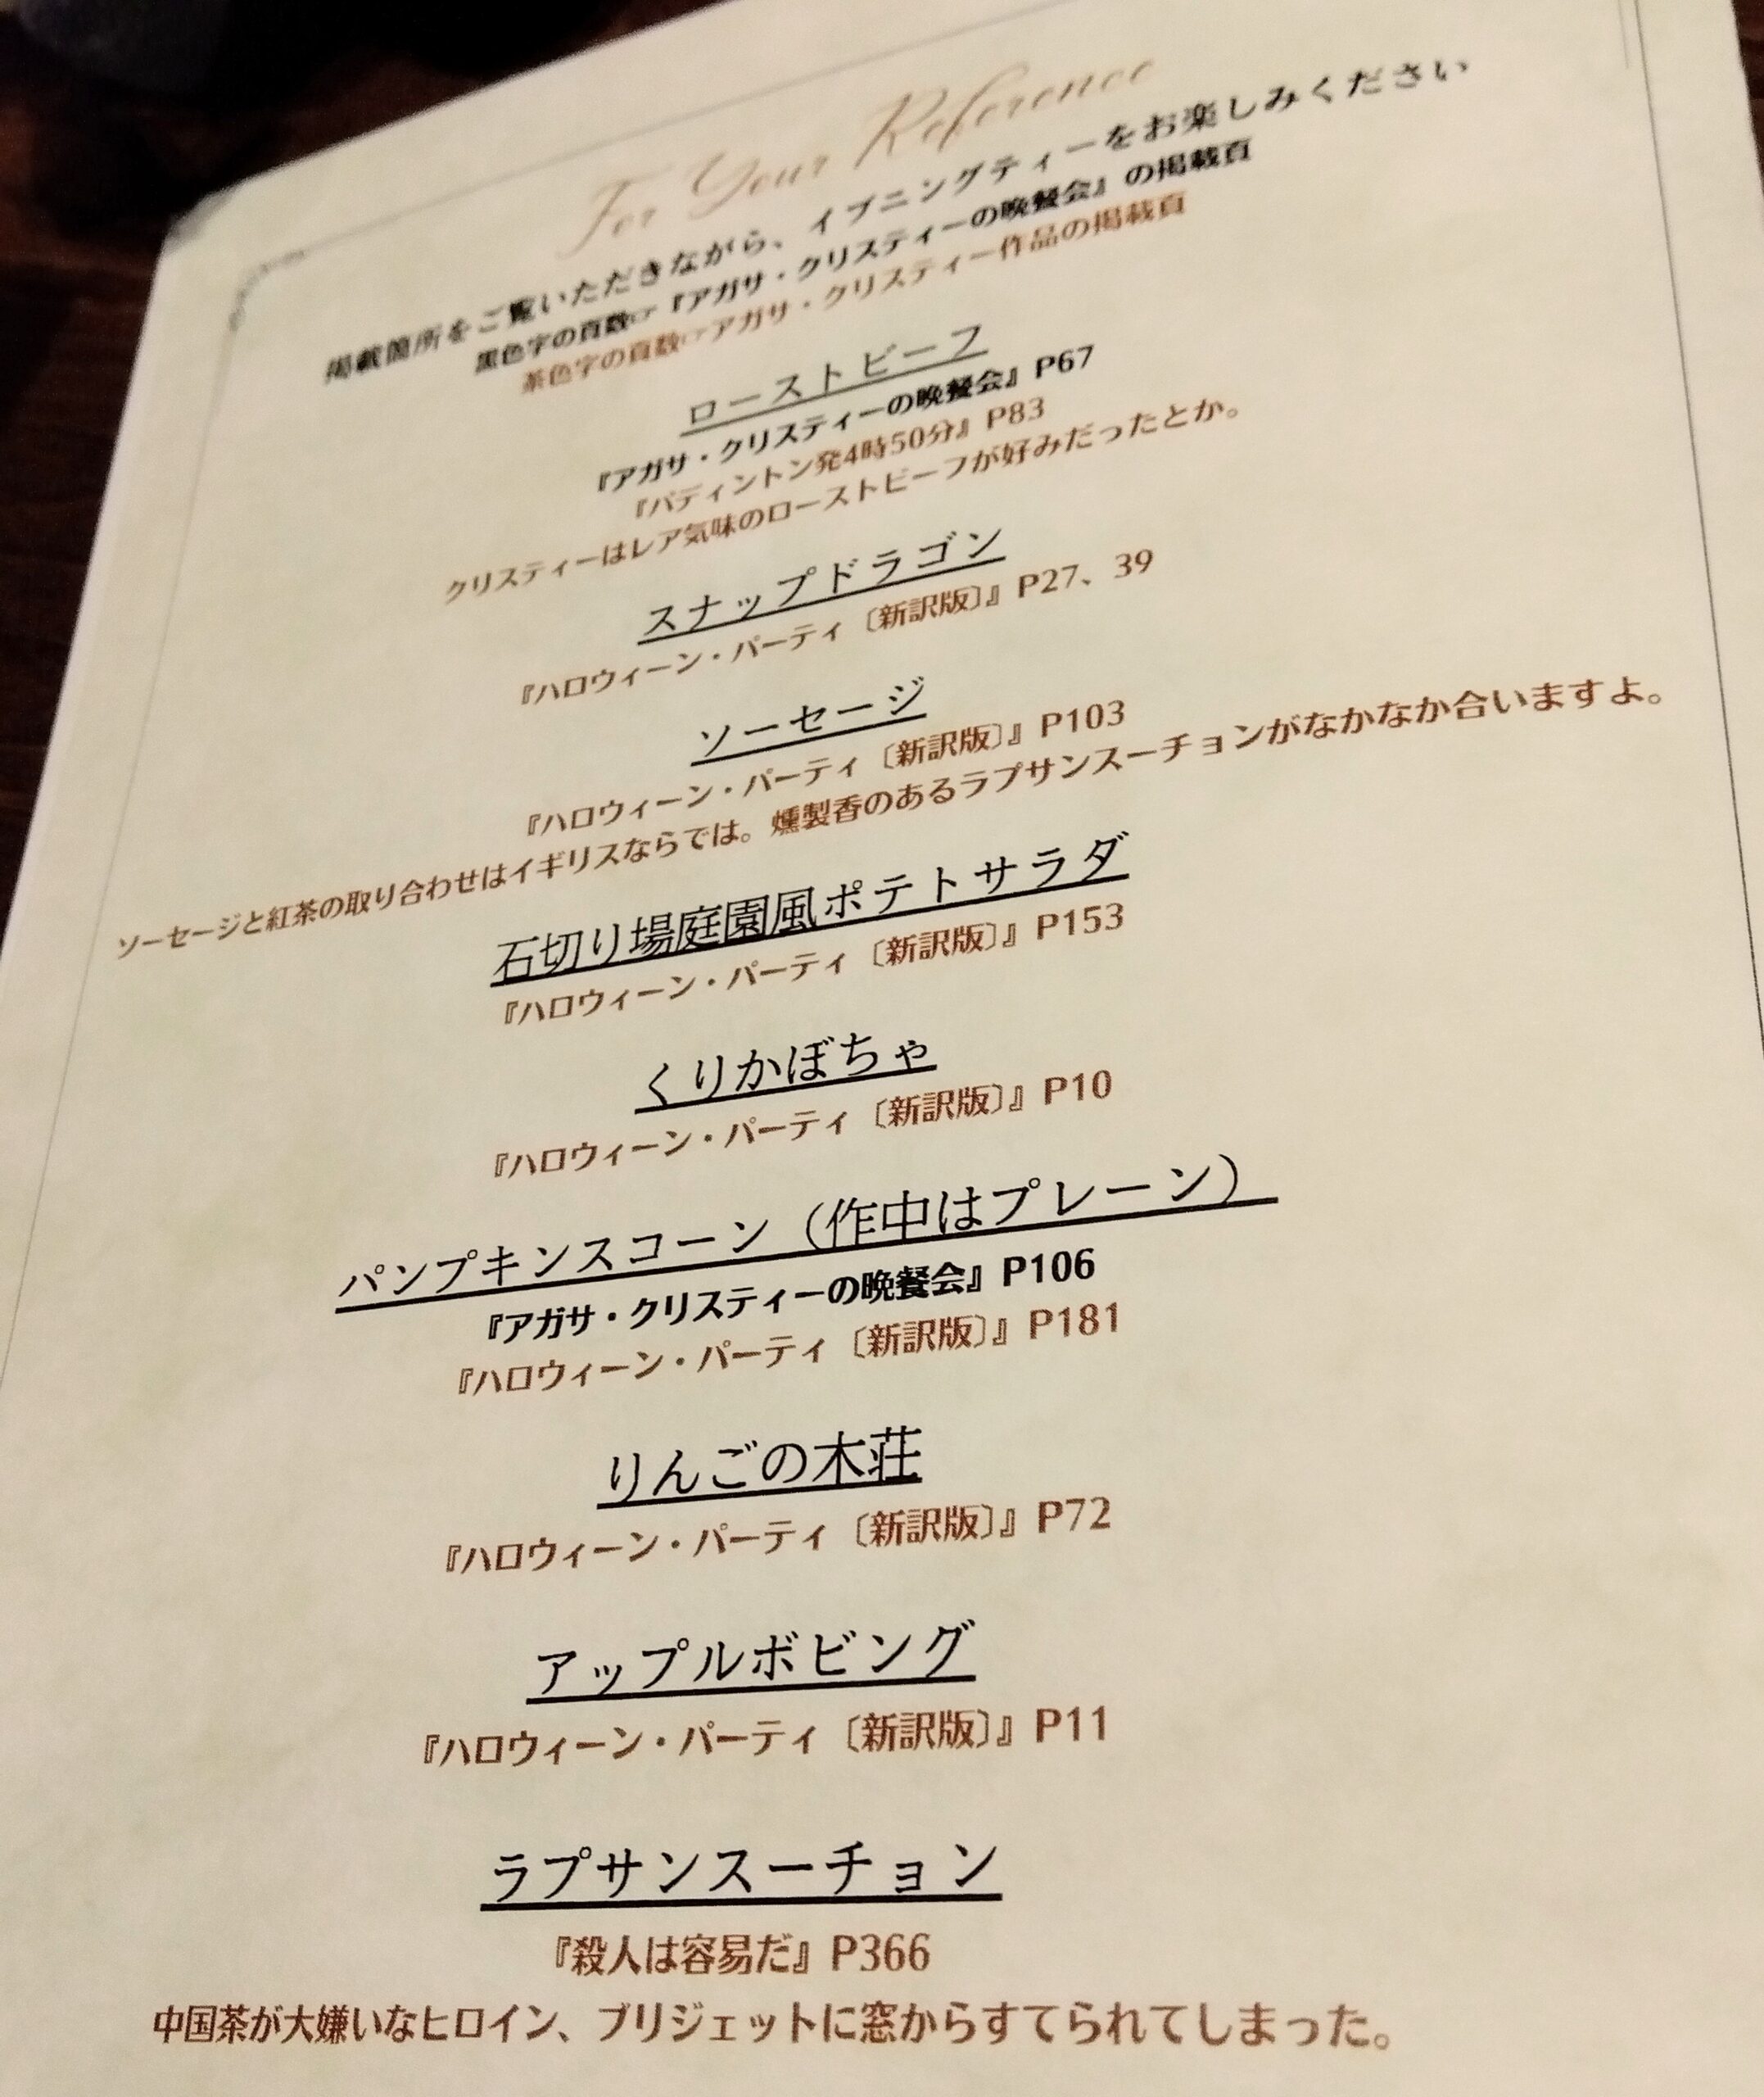 For Your Reference
掲載箇所をご覧いただきながら、イブニングティーをお楽しみください
黒色字の頁数☞『アガサ・クリスティーの晩餐会』の掲載頁
茶色字の頁数☞アガサ・クリスティー作品の掲載頁
ローストビーフ
『アガサ・クリスティーの晩餐会』P67
『パディントン発4時50分』P83
クリスティーはレア気味のローストビーフが好みだったとか。
スナップドラゴン
『ハロウィーン・パーティ〔新訳版〕』P27、39
ソーセージ
『ハロウィーン・パーティ〔新訳版〕』P103
ソーセージと紅茶の取り合わせはイギリスならでは。燻製香のあるラプサンスーチョンがなかなか合いますよ。
石切り場庭園風ポテトサラダ
『ハロウィーン・パーティ〔新訳版〕』P153
くりかぼちゃ
『ハロウィーン・パーティ〔新訳版〕』P10
パンプキンスコーン（作中はプレーン）
『アガサ・クリスティーの晩餐会』P106
『ハロウィーン・パーティ〔新訳版〕』P181
りんごの木荘
『ハロウィーン・パーティ〔新訳版〕』P72
アップルボビング
『ハロウィーン・パーティ〔新訳版〕』P11
ラプサンスーチョン
『殺人は容易だ』P366
中国茶が大嫌いなヒロイン、ブリジェットに窓からすてられてしまった。